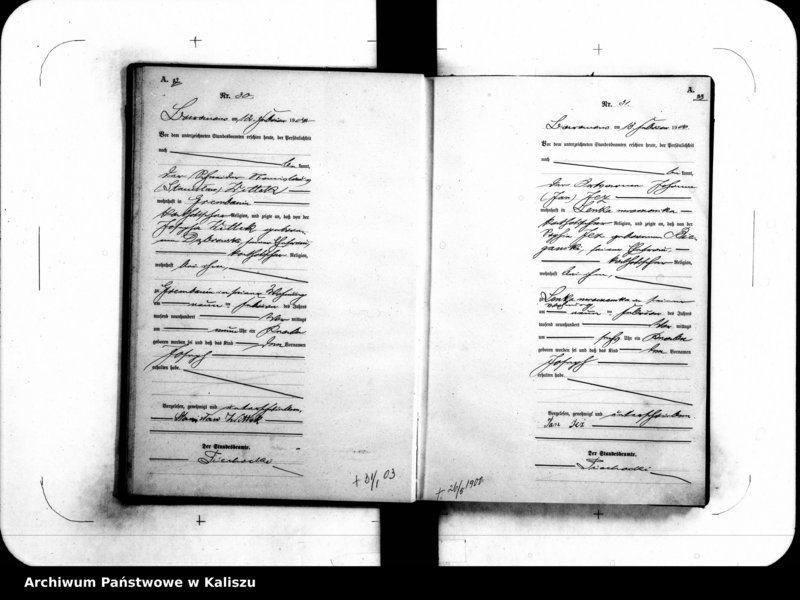 A. 17
Nr. 30.
am 12. Februar 190
Vor dem unterzeichneten Standesbeamten erschien heute, der Persönlichkeit
nach
kannt,
der Schneider Stanislaus
(Stanislaw) Wittek
wohnhaft in Grembanin
katholischer Religion, und zeigte an, daß von der
Josepha Wittek geborenen
seiner Ehefrau,
katholischer Religion,
wohnhaft bei ihm,
zu Grembanin in seiner Wohnung
am neunten Februar des Jahres
tausend neunhundert mittags
um neun Uhr ein Knabe
geboren worden sei und daß das Kind den Vornamen
Joseph
erhalten habe.
Vorgelesen, genehmigt und unterschrieben
Stanislaw Wittek
Der Standesbeamte.
+ 31/1 03
A.
Nr. 31.
am 13. Februar 190
Vor dem unterzeichneten Standesbeamten erschien heute, der Persönlichkeit
nach
kannt,
der Johann
(Jan) Jez
wohnhaft in Lenka mroczonka
katholischer Religion, und zeigte an, daß von der
Sophie Jez geborenen
seiner Ehefrau,
katholischer Religion,
wohnhaft bei ihm,
zu Lenka mroczonka in seiner
Wohnung
am neunten Februar des Jahres
tausend neunhundert mittags
um sechs Uhr ein Knabe
geboren worden sei und daß das Kind den Vornamen
Joseph
erhalten habe.
Vorgelesen, genehmigt und unterschrieben
Jan Jez
Der Standesbeamte.
+ 26/6 1900
Archiwum Państwowe w Kaliszu